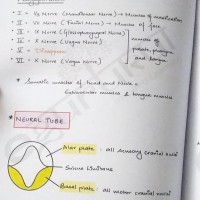 • I = V₃ Nerve (Mandibular Nerve) → Muscles of mastication
• II = VII Nerve (Facial Nerve) → Muscles of face
• III = IX Nerve (Glossopharyngeal Nerve)
• IV = X Nerve (Vagus Nerve)
muscles of palate, pharynx and larynx
• V = Disappears
• VI = X Nerve (Vagus Nerve)
* Somatic muscles of head and neck =
Extraocular muscles & tongue muscles
NEURAL TUBE
Alar plate : all sensory cranial nuclei
Sulcus limitans
Basal plate : all motor cranial nuclei